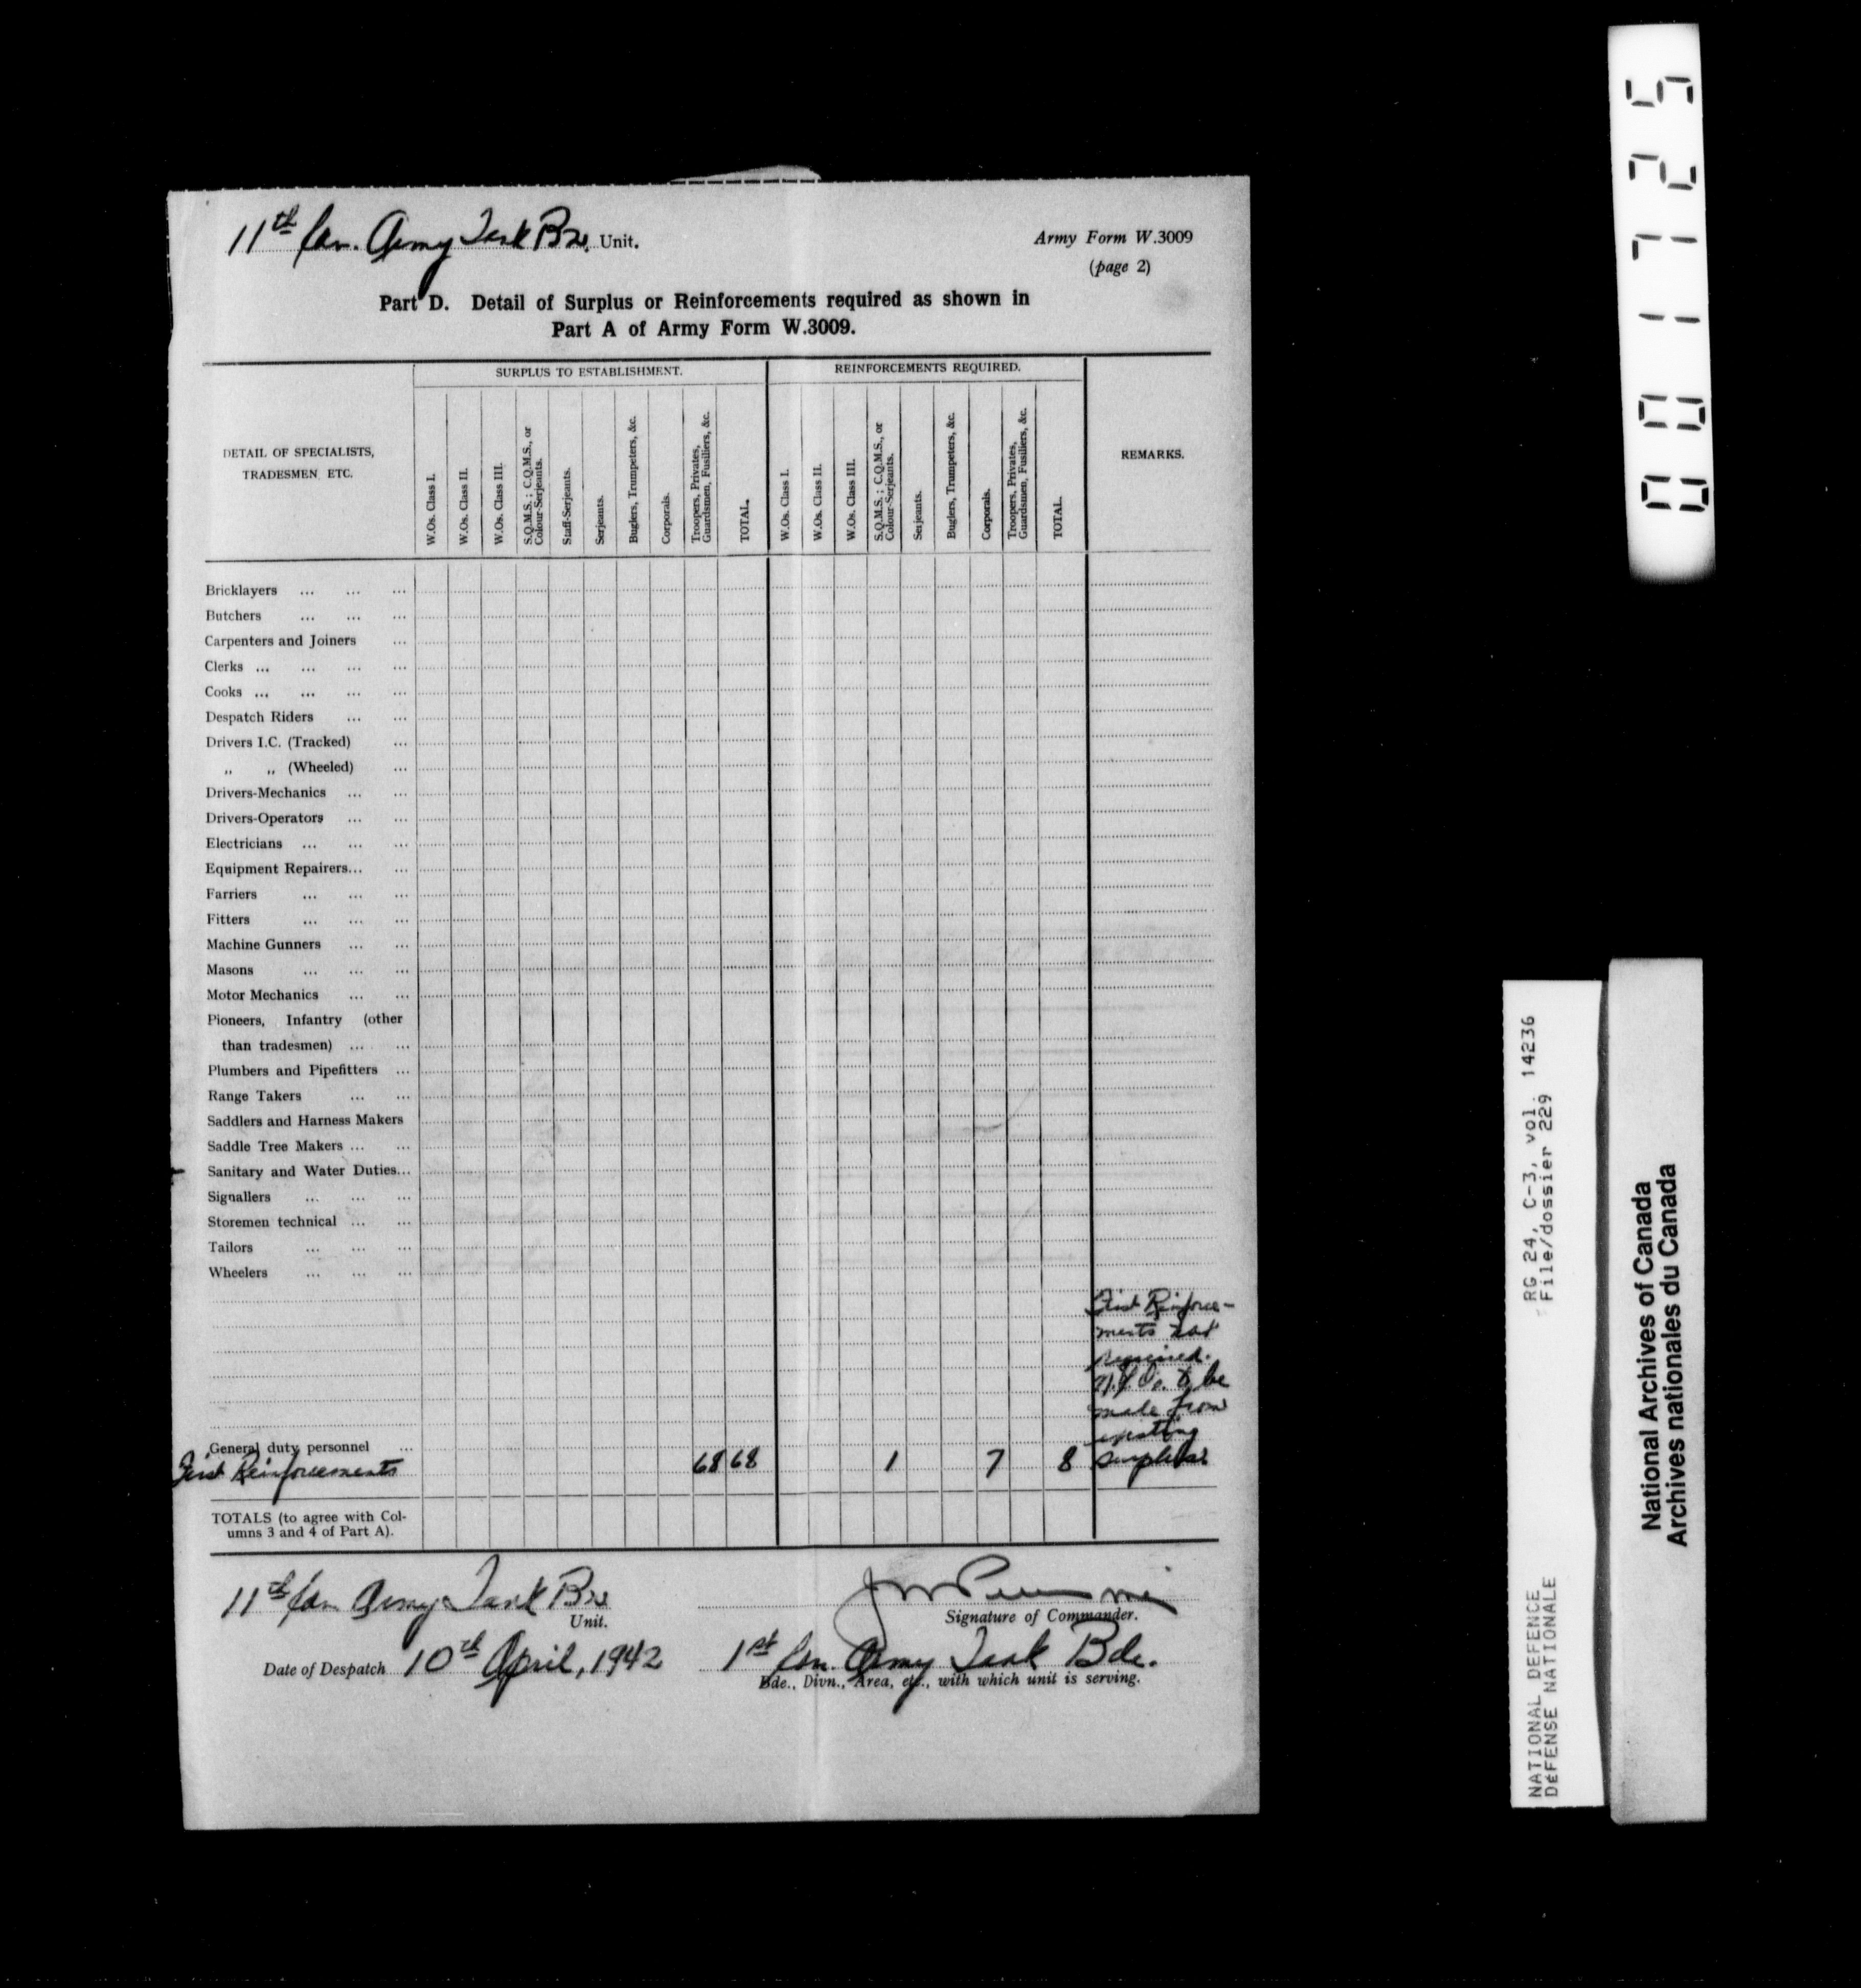 11th Can. Army Tank Bn. Unit.
Army Form W.3009
(page 2)
Part D. Detail of Surplus or Reinforcements required as shown in
Part A of Army Form W.3009.
DETAIL OF SPECIALISTS,
TRADESMEN ETC.
SURPLUS TO ESTABLISHMENT.
W.Os. Class I.
W.Os. Class II.
W.Os. Class III.
S.Q.M.S.; C.Q.M.S., or
Colour-Serjeants.
Staff-Serjeants.
Serjeants.
Buglers, Trumpeters, &c.
Corporals.
Troopers, Privates,
Guardsmen, Fusiliers, &c.
TOTAL.
REINFORCEMENTS REQUIRED.
W.Os. Class I.
W.Os. Class II.
W.Os. Class III.
S.Q.M.S.; C.Q.M.S., or
Colour-Serjeants.
Serjeants.
Buglers, Trumpeters, &c.
Corporals.
Troopers, Privates,
Guardsmen, Fusiliers, &c.
TOTAL.
REMARKS.
Bricklayers ... ... ...
Butchers ... ... ...
Carpenters and Joiners ...
Clerks ... ... ... ...
Cooks ... ... ... ...
Despatch Riders ... ...
Drivers I.C. (Tracked) ...
„ „ (Wheeled) ...
Drivers-Mechanics ... ...
Drivers-Operators ... ...
Electricians ... ... ...
Equipment Repairers... ...
Farriers ... ... ...
Fitters ... ... ...
Machine Gunners ... ...
Masons ... ... ...
Motor Mechanics ... ...
Pioneers, Infantry (other
than tradesmen) ... ...
Plumbers and Pipefitters ...
Range Takers ... ...
Saddlers and Harness Makers
Saddle Tree Makers ... ...
Sanitary and Water Duties...
Signallers ... ... ...
Storemen technical ... ...
Tailors ... ... ...
Wheelers ... ... ...
First Reinforce-
ments not
received.
to be
made from
existing
General duty personnel ...
First Reinforcements 68 68 1 7 8 surplus.
TOTALS (to agree with Col-
umns 3 and 4 of Part A).
11th Can Army Tank Bn
Unit.
Signature of Commander.
Date of Despatch 10th April, 1942
1st Can. Army Tank Bde.
Bde., Divn., Area, etc., with which unit is serving.
001725
RG 24, C-3, vol. 14236
File/dossier 229
NATIONAL DEFENCE
DÉFENSE NATIONALE
National Archives of Canada
Archives nationales du Canada